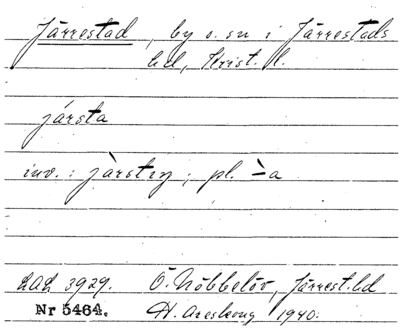 Järrestad, by o. sn i Järrestads
hd, Krist. l.
jársta
inv.: jàrstɪŋ; pl. -̀a
LAL 3929. Ö. Nöbbelöv, Järrest. hd
Nr 5464. H. Areskoug 1940.